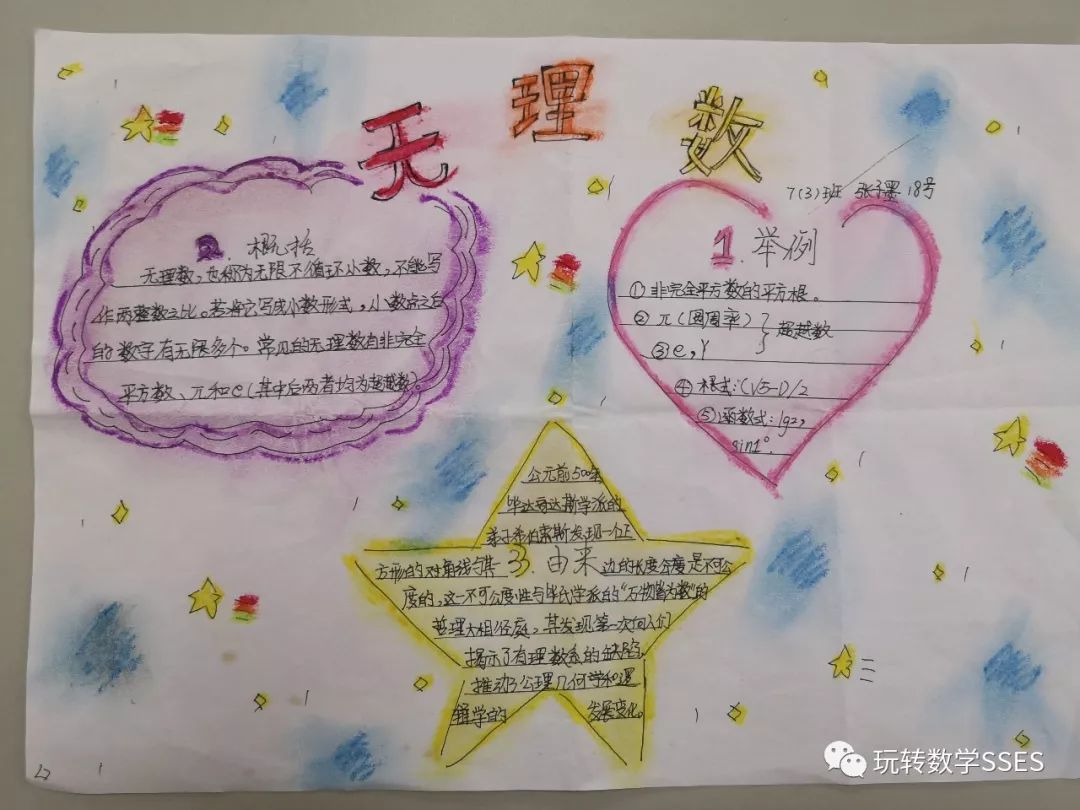 无理数
7(3)班 张子墨 18号
2. 概括
无理数，也称为无限不循环小数，不能写
作两整数之比。若将它写成小数形式，小数点之后
的数字有无限多个。常见的无理数有非完全
平方数、π和e(其中后两者均为超越数)。
1. 举例
①非完全平方数的平方根。
②π(圆周率) } 超越数
③e，γ
④根式：(√5-1)/2
⑤函数式：lg2，
sin1°。
公元前500年
毕达哥达斯学派的
弟子希伯索斯发现一个正
方形的对角线与其
3. 由来
边的长度分度是不可公
度的，这一不可公度性与毕氏学派的“万物皆为数”的
哲理大相径庭，其发现第一次向人们
揭示了有理数系的缺陷，
推动了公理几何学和逻
辑学的 发展变化。
玩转数学SSES